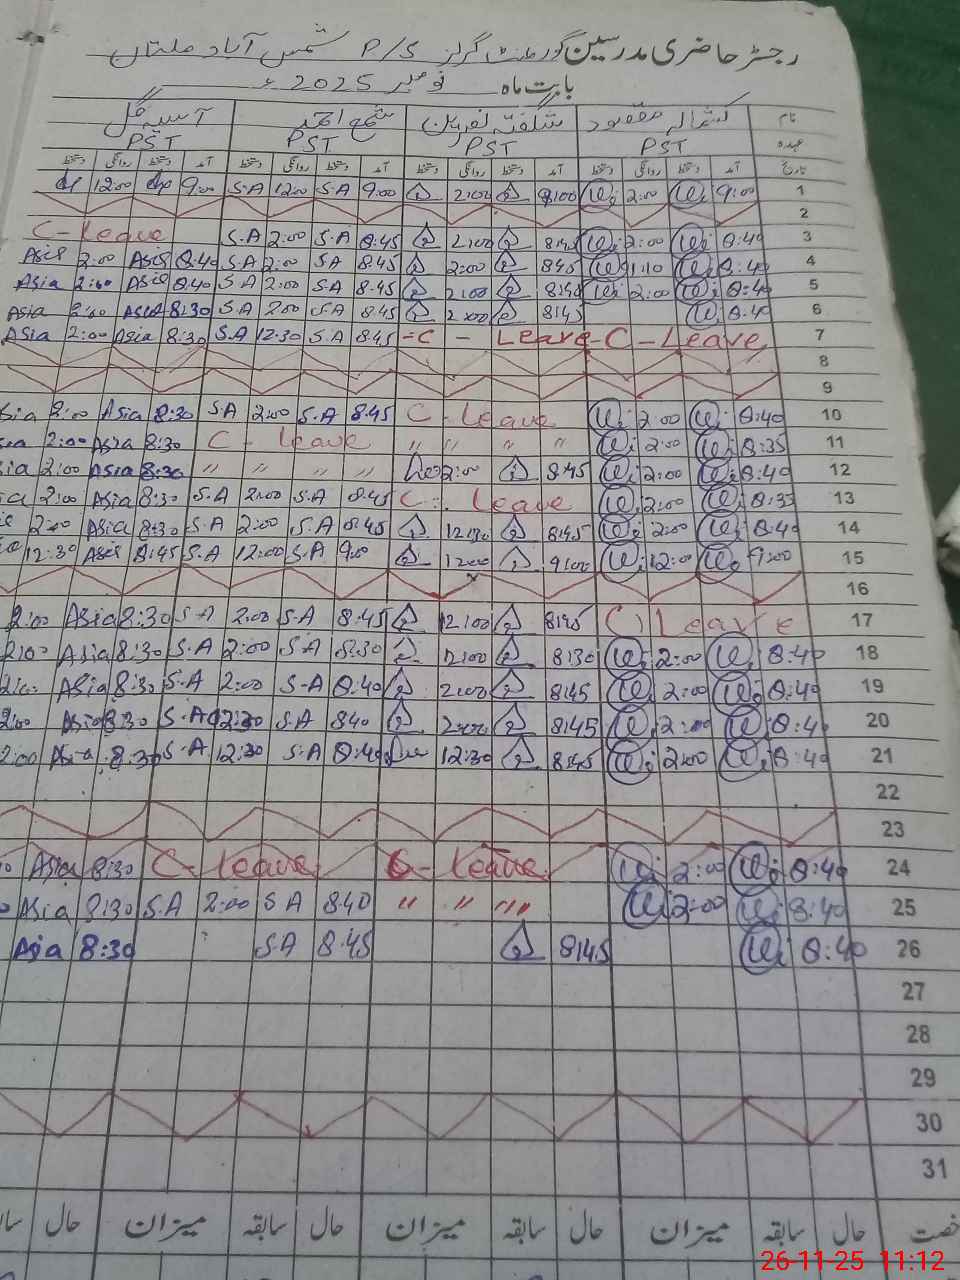 رجسٹر حاضری مدرسین گورنمنٹ گرلز P/S شمس آباد ملتان
بابت ماہ نومبر 2025ء
نام کشمالہ مقصود شگفتہ نسرین شمع احمد آسیہ گل
عہدہ PST PST PST PST
تاریخ آمد دستخط روانگی دستخط آمد دستخط روانگی دستخط آمد دستخط روانگی دستخط آمد دستخط روانگی دستخط
12:00 9:00 S.A 12:00 S.A 9:00 2:00 9:00 2:00 9:00 1
2
C-Leave S.A 2:00 S.A 8:45 2:00 8:45 2:00 8:40 3
2:00 8:40 S.A 2:00 S.A 8:45 2:00 8:45 1:10 8:40 4
Asia 2:00 8:40 S.A 2:00 S.A 8:45 2:00 8:45 2:00 8:40 5
Asia Asia 8:30 S.A 2:00 S.A 8:45 2:00 8:45 8:40 6
Asia 2:00 Asia 8:30 S.A 12:30 S.A 8:45 -C - Leave -C-Leave 7
8
9
Asia 8:30 S.A 2:00 S.A 8:45 C-Leave 2:00 8:40 10
2:00 Asia 8:30 C - Leave " " " " 2:00 8:35 11
2:00 Asia 8:30 " " " " 2:00 8:45 2:00 8:40 12
2:00 Asia 8:30 S.A 2:00 S.A 8:45 C. Leave 2:00 8:35 13
2:00 Asia 8:30 S.A 2:00 S.A 8:45 12:30 8:45 2:00 8:40 14
12:30 8:45 S.A 12:00 S.A 9:00 12:00 9:00 12:00 9:00 15
16
2:00 Asia 8:30 S.A 2:00 S.A 8:45 12:00 8:45 C) Leave 17
2:00 Asia 8:30 S.A 2:00 S.A 8:30 2:00 8:30 2:00 8:40 18
Asia 8:30 S.A 2:00 S.A 8:40 2:00 8:45 2:00 8:40 19
2:00 Asia 8:30 S.A 12:30 S.A 8:40 2:00 8:45 2:00 8:40 20
2:00 Asia 8:30 S.A 12:30 S.A 8:40 12:30 8:45 2:00 8:40 21
22
23
Asia 8:30 C-Leave C-Leave 2:00 8:40 24
Asia 8:30 S.A 2:00 S.A 8:40 " " " " 2:00 8:40 25
Asia 8:30 S.A 8:45 8:45 8:40 26
27
28
29
30
31
حال سابقہ میزان حال سابقہ میزان حال سابقہ میزان حال
26-11-25 11:12